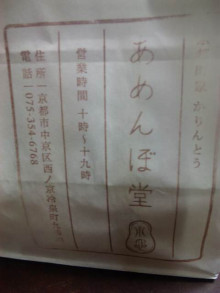 かりんとう
あめんぼ堂
営業時間 十時〜十九時
住所｜京都市中京区西ノ京冷泉町
電話｜075-354-6768